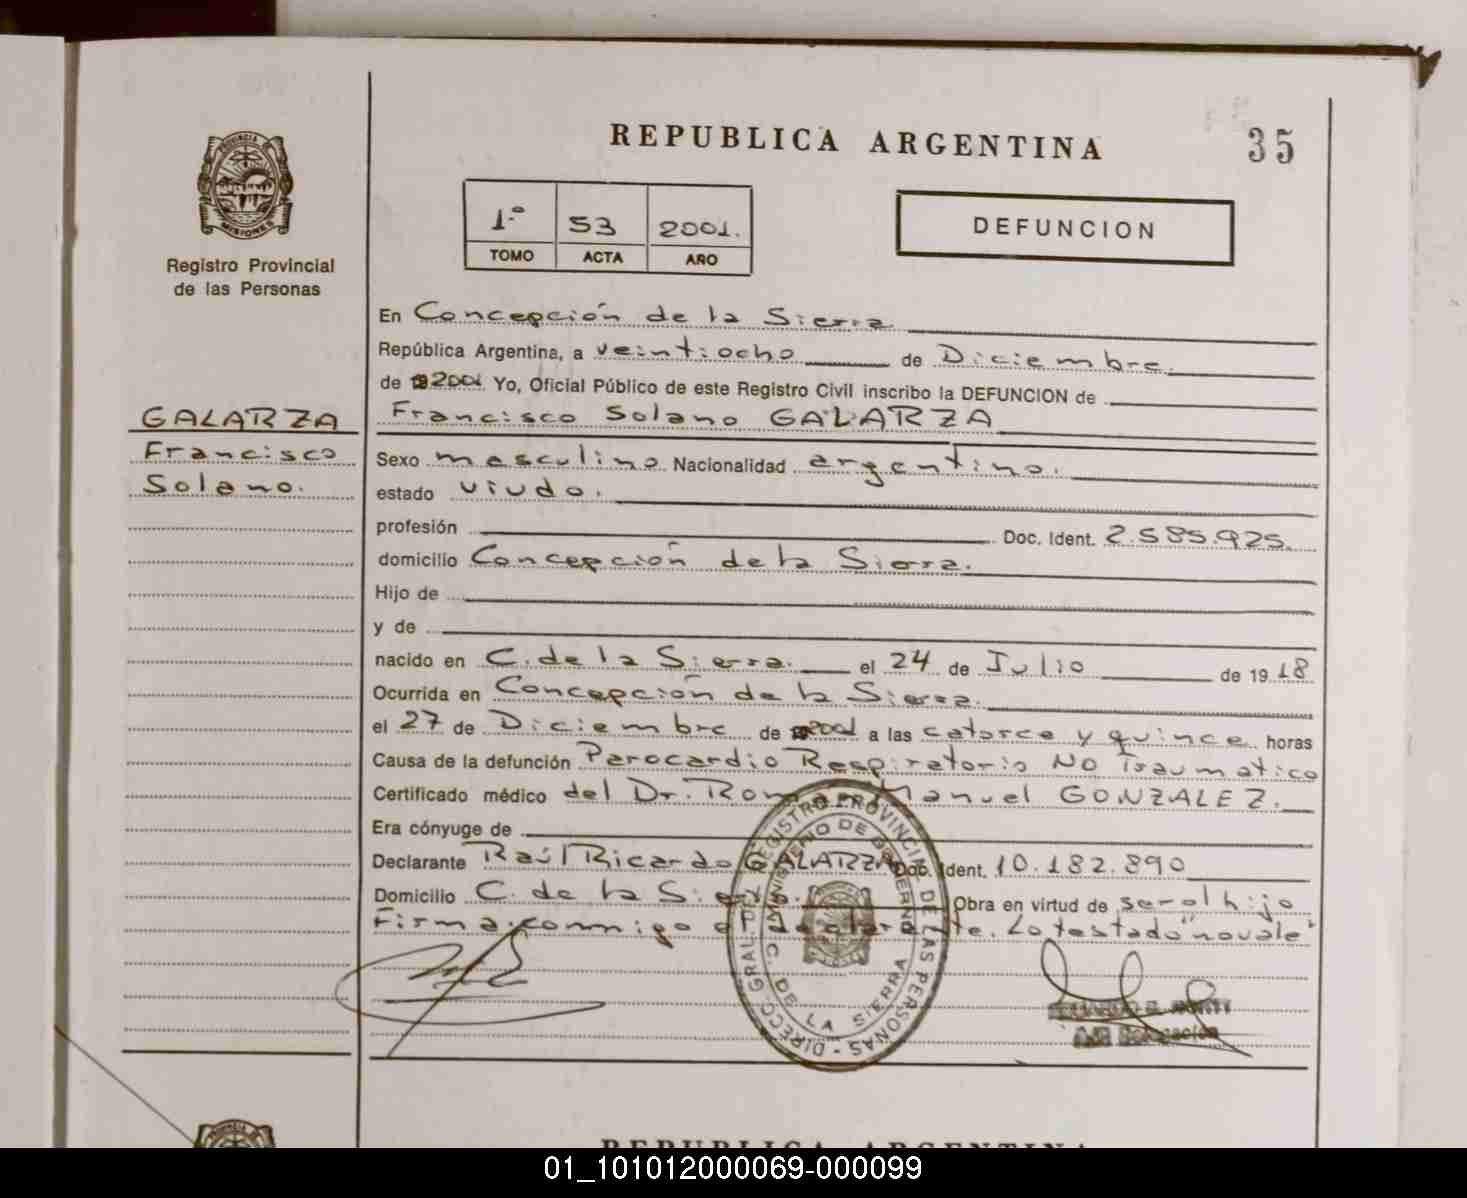 REPUBLICA ARGENTINA
35
PROVINCIA
MISIONES
Registro Provincial
de las Personas
1º 53 2001.
TOMO ACTA AÑO
DEFUNCION
En Concepción de la Sierra
República Argentina, a veintiocho de Diciembre
de 2001 Yo, Oficial Público de este Registro Civil inscribo la DEFUNCION de
GALARZA
Francisco
Solano.
Francisco Solano GALARZA
Sexo masculino Nacionalidad argentino.
estado viudo.
profesión Doc. Ident. 2.585.925.
domicilio Concepción de la Sierra.
Hijo de
y de
nacido en C. de la Sierra. el 24 de Julio de 1918
Ocurrida en Concepción de la Sierra.
el 27 de Diciembre de 2001 a las catorce y quince horas
Causa de la defunción Parocardio Respiratorio NO Traumatico
Certificado médico del Dr. Manuel GONZALEZ.
Era cónyuge de
Declarante Raúl Ricardo GALARZA Doc. Ident. 10.182.890
Domicilio C. de la Sierra. Obra en virtud de ser el hijo
Firma conmigo el declarante. Lo testado "no vale"
DIRECC. GRAL. DEL REGISTRO PROVINCIAL DE LAS PERSONAS
MINISTERIO DE GOBIERNO
C. DE LA SIERRA
REPUBLICA ARGENTINA
01_101012000069-000099